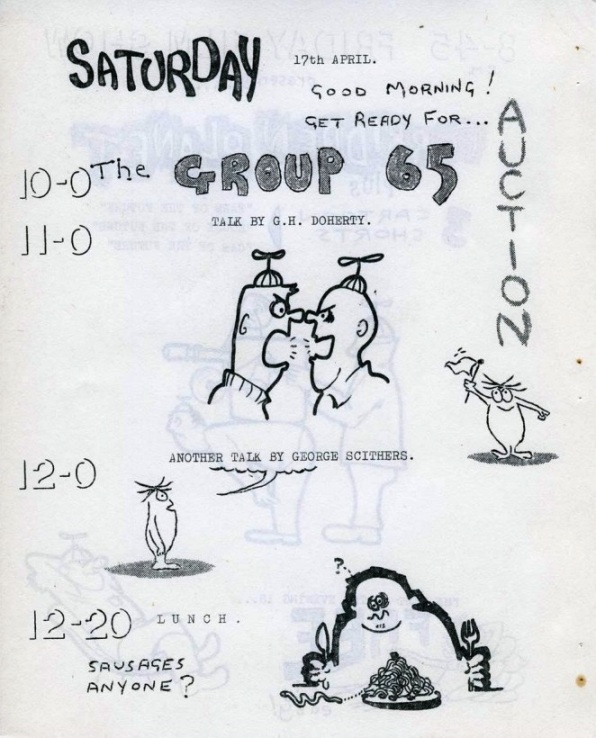 SATURDAY
17th APRIL.
GOOD MORNING!
GET READY FOR...
AUCTION
10-0 The GROUP 65
11-0
TALK BY G.H. DOHERTY.
12-0
ANOTHER TALK BY GEORGE SCITHERS.
?
12-20 LUNCH.
SAUSAGES
ANYONE?